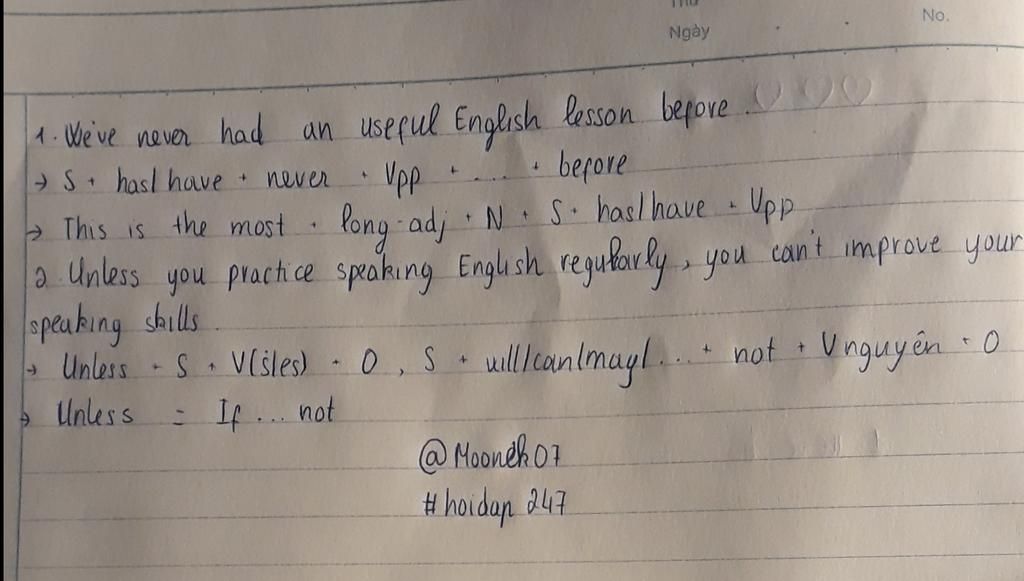 Thứ
Ngày
No.
1. We've never had an useful English lesson before.
→ S + has/have + never + Vpp + .... + before
→ This is the most + long-adj + N + S + has/have + Vpp
2. Unless you practice speaking English regularly, you can't improve your
speaking skills.
→ Unless + S + V(s/es) + O, S + will/can/may/... + not + V nguyên + O
→ Unless = If ... not
@Moonek07
#hoidap 247